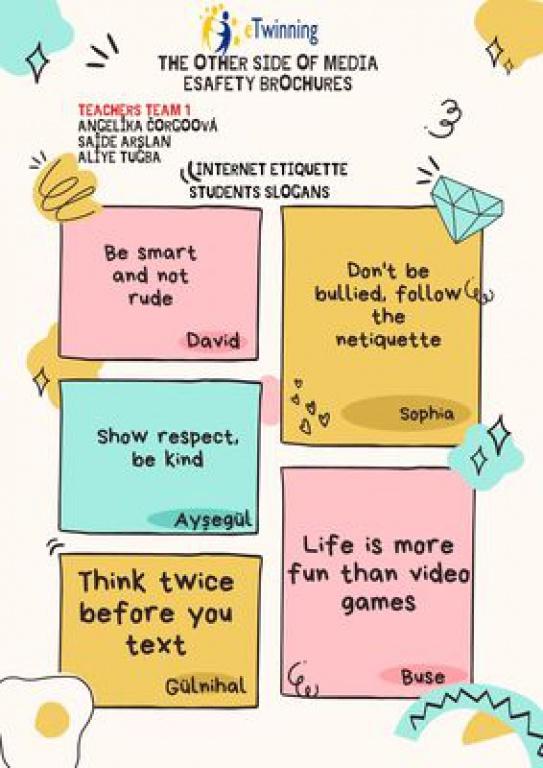 eTwinning
THE OTHER SIDE OF MEDIA
ESAFETY BROCHURES
TEACHERS TEAM 1
ANGELİKA ČORGOOVÁ
SAİDE ARSLAN
ALİYE TUĞBA
INTERNET ETIQUETTE
STUDENTS SLOGANS
Be smart
and not
rude
David
Don't be
bullied, follow
the
netiquette
Sophia
Show respect,
be kind
Ayşegül
Life is more
fun than video
games
Buse
Think twice
before you
text
Gülnihal